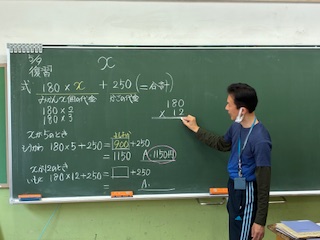 5/9
復習
x
式 180 × x + 250 (=合計)
みかんx個の代金 かごの代金
180 × 2
180 × 3
xが5のとき
180×5+250 = 900 +250
= 1150 A. 1150円
xが12のとき
180×12+250 = □ +250
= A.
180
× 12